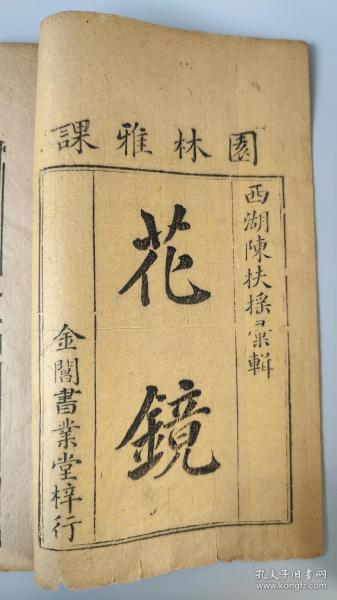 園林雅課
西湖陳扶搖彙輯
花鏡
金閶書業堂梓行
孔夫子旧书网